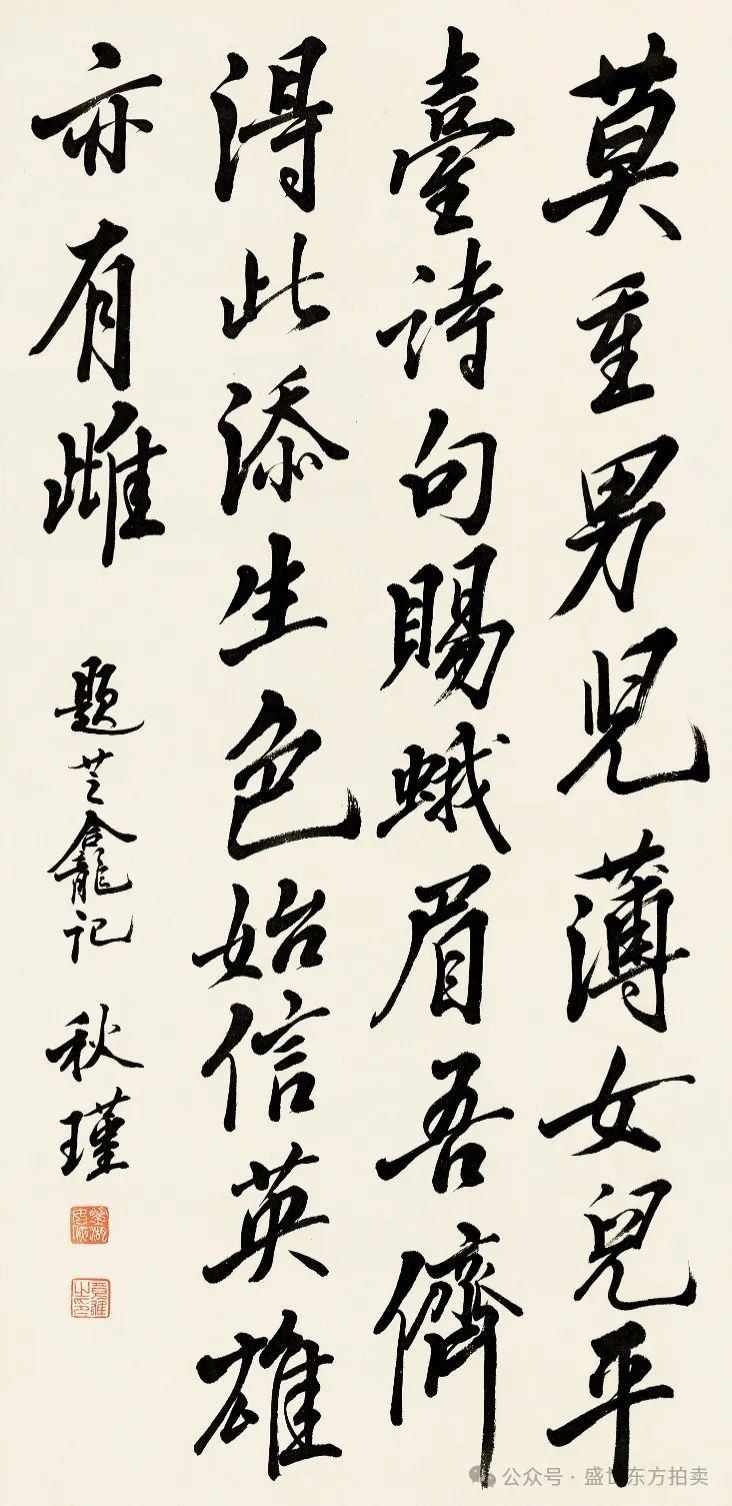 莫重男兒薄女兒平
臺詩句賜蛾眉吾儕
得此添生色始信英雄
亦有雌
題芝龕記 秋瑾
鑑湖女俠
競雄之印
公众号·盛世东方拍卖